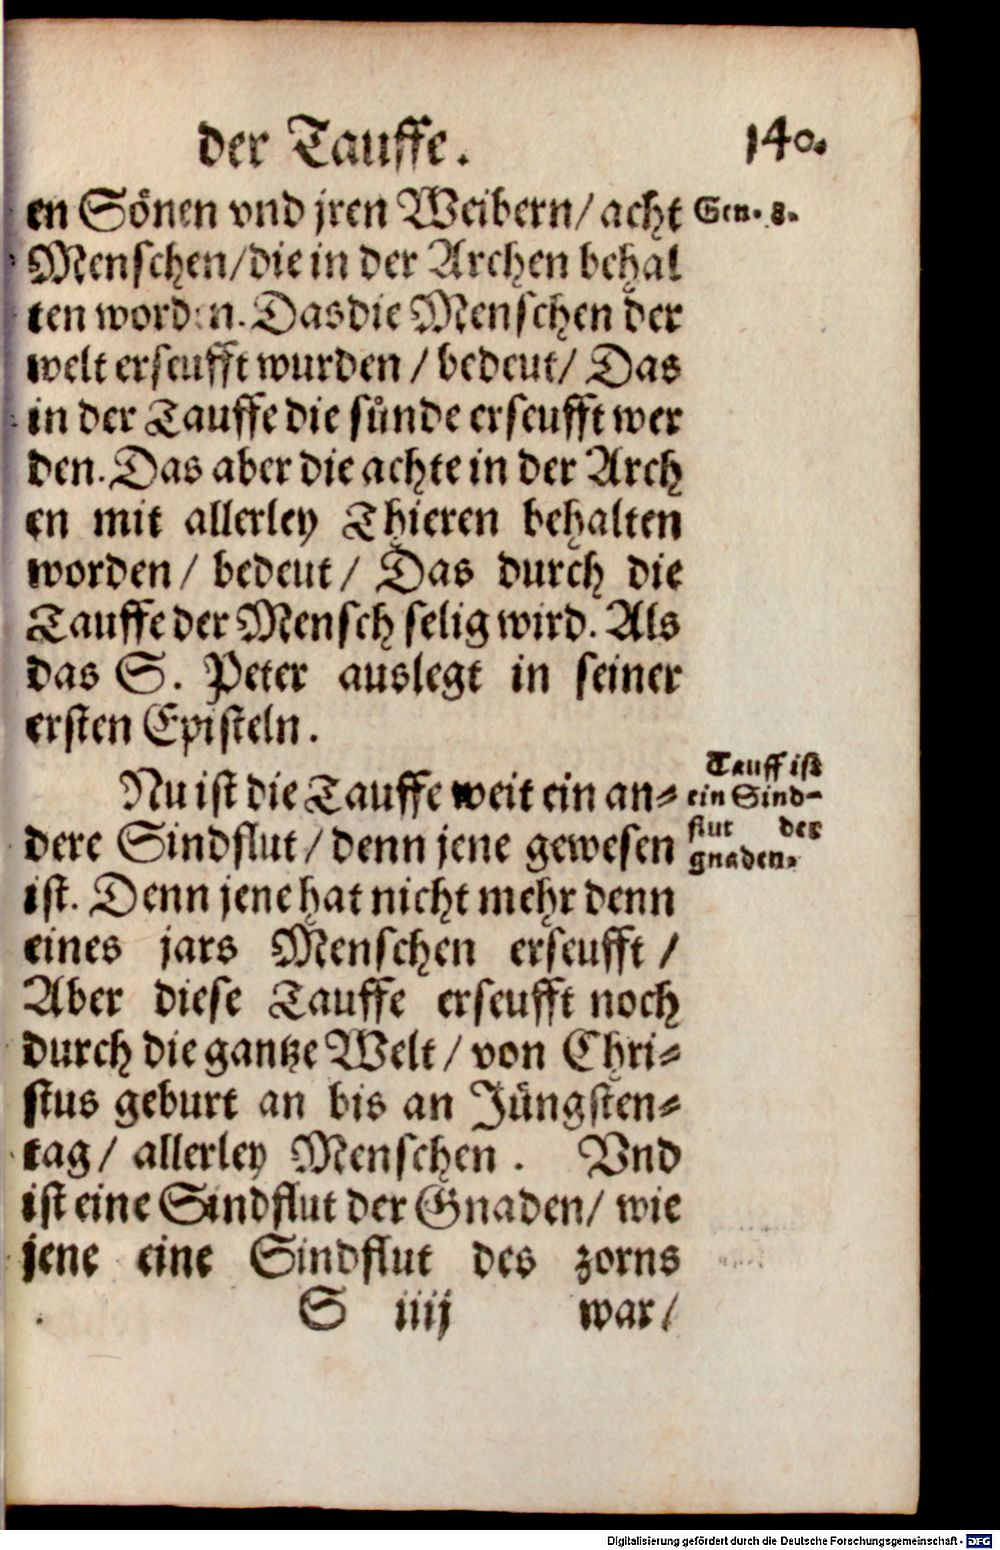 der Tauffe. 140.
en Sönen vnd jren Weibern/ acht Gen. 8.
Menschen/die in der Archen behal
ten worden. Das die Menschen der
welt erseufft wurden / bedeut/ Das
in der Tauffe die sünde erseufft wer
den. Das aber die achte in der Arch
en mit allerley Thieren behalten
worden/ bedeut/ Das durch die
Tauffe der Mensch selig wird. Als
das S. Peter auslegt in seiner
ersten Episteln.
Nu ist die Tauffe weit ein an⸗
dere Sindflut/ denn jene gewesen
ist. Denn jene hat nicht mehr denn
eines jars Menschen erseufft /
Aber diese Tauffe erseufft noch
durch die gantze Welt/ von Chri⸗
stus geburt an bis an Jüngsten⸗
tag/ allerley Menschen. Vnd
ist eine Sindflut der Gnaden/ wie
jene eine Sindflut des zorns
S iiij war/
Tauff ist
ein Sind-
flut der
gnaden.
Digitalisierung gefördert durch die Deutsche Forschungsgemeinschaft - DFG